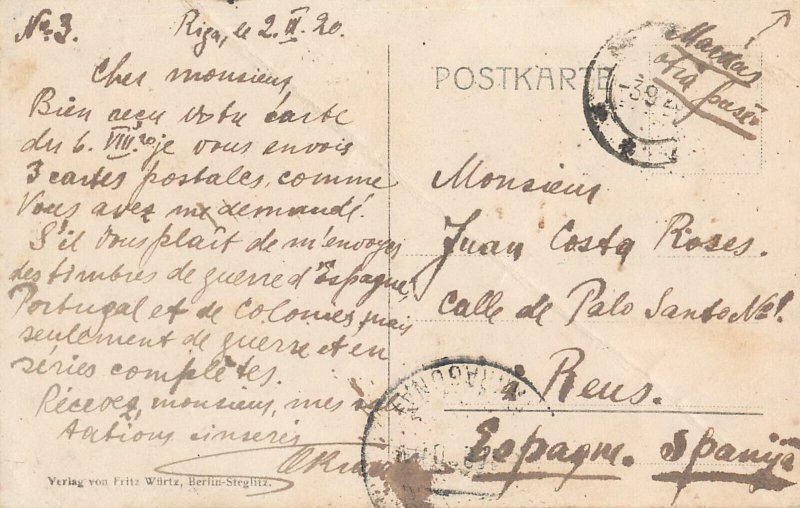 № 3. Riga, le 2.IX.20.
Cher monsieur,
Bien reçu votre carte
du 6.VIII.20 je vous envois
3 cartes postales, comme
Vous avez me demandé.
S'il vous plaît de m'envoyer
des timbres de guerre d'Espagne,
Portugal et de Colonies, mais
seulement de guerre et en
séries complètes.
Recevez, monsieur, mes salu-
tations sinserés
Verlag von Fritz Würtz, Berlin-Steglitz.
POSTKARTE
Markas
otrā pusē
Monsieur
Juan Costa Roses.
Calle de Palo Santo № 1.
à Reus.
Espagne. Spanijā
TARRAGONA